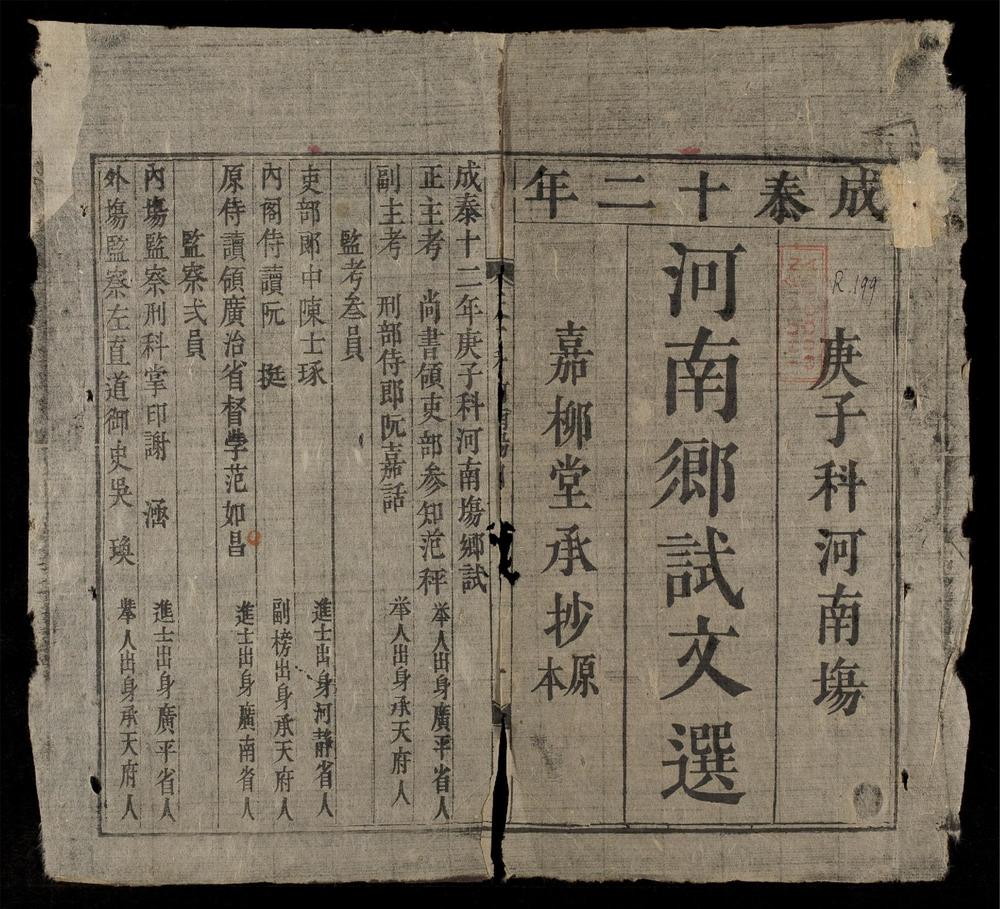 成泰十二年
庚子科河南塲
河南鄉試文選
嘉柳堂承抄原本
R.199
成泰十二年庚子科河南塲鄉試
正主考 尚書領吏部參知范秤 举人出身廣平省人
副主考 刑部侍郎阮嘉話 举人出身承天府人
監考叄員
吏部郎中陳士琢 進士出身河靜省人
內閣侍讀阮 挺 副榜出身承天府人
原侍讀領廣治省督學范如昌 進士出身廣南省人
監察弍員
內塲監察刑科掌印謝 涵 進士出身廣平省人
外塲監察左直道御史吳 瑍 舉人出身承天府人